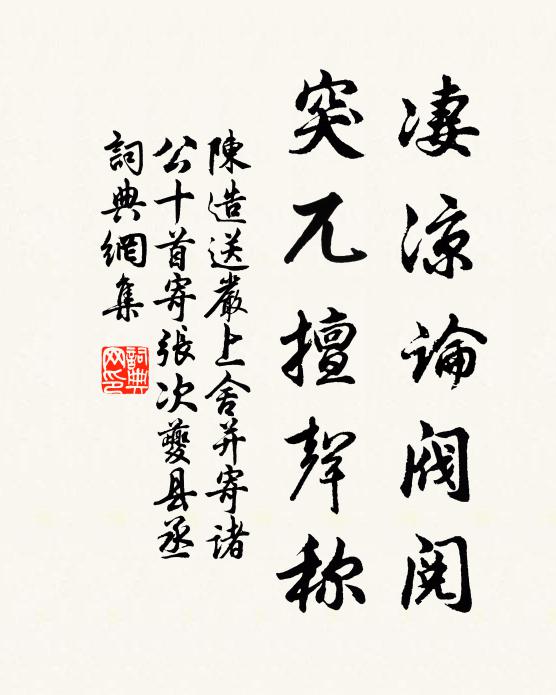 凄涼論閥閱
突兀擅聲称
陳造送嚴上舍并寄諸
公十首寄張次夔县丞
詞典網集
詞典网印